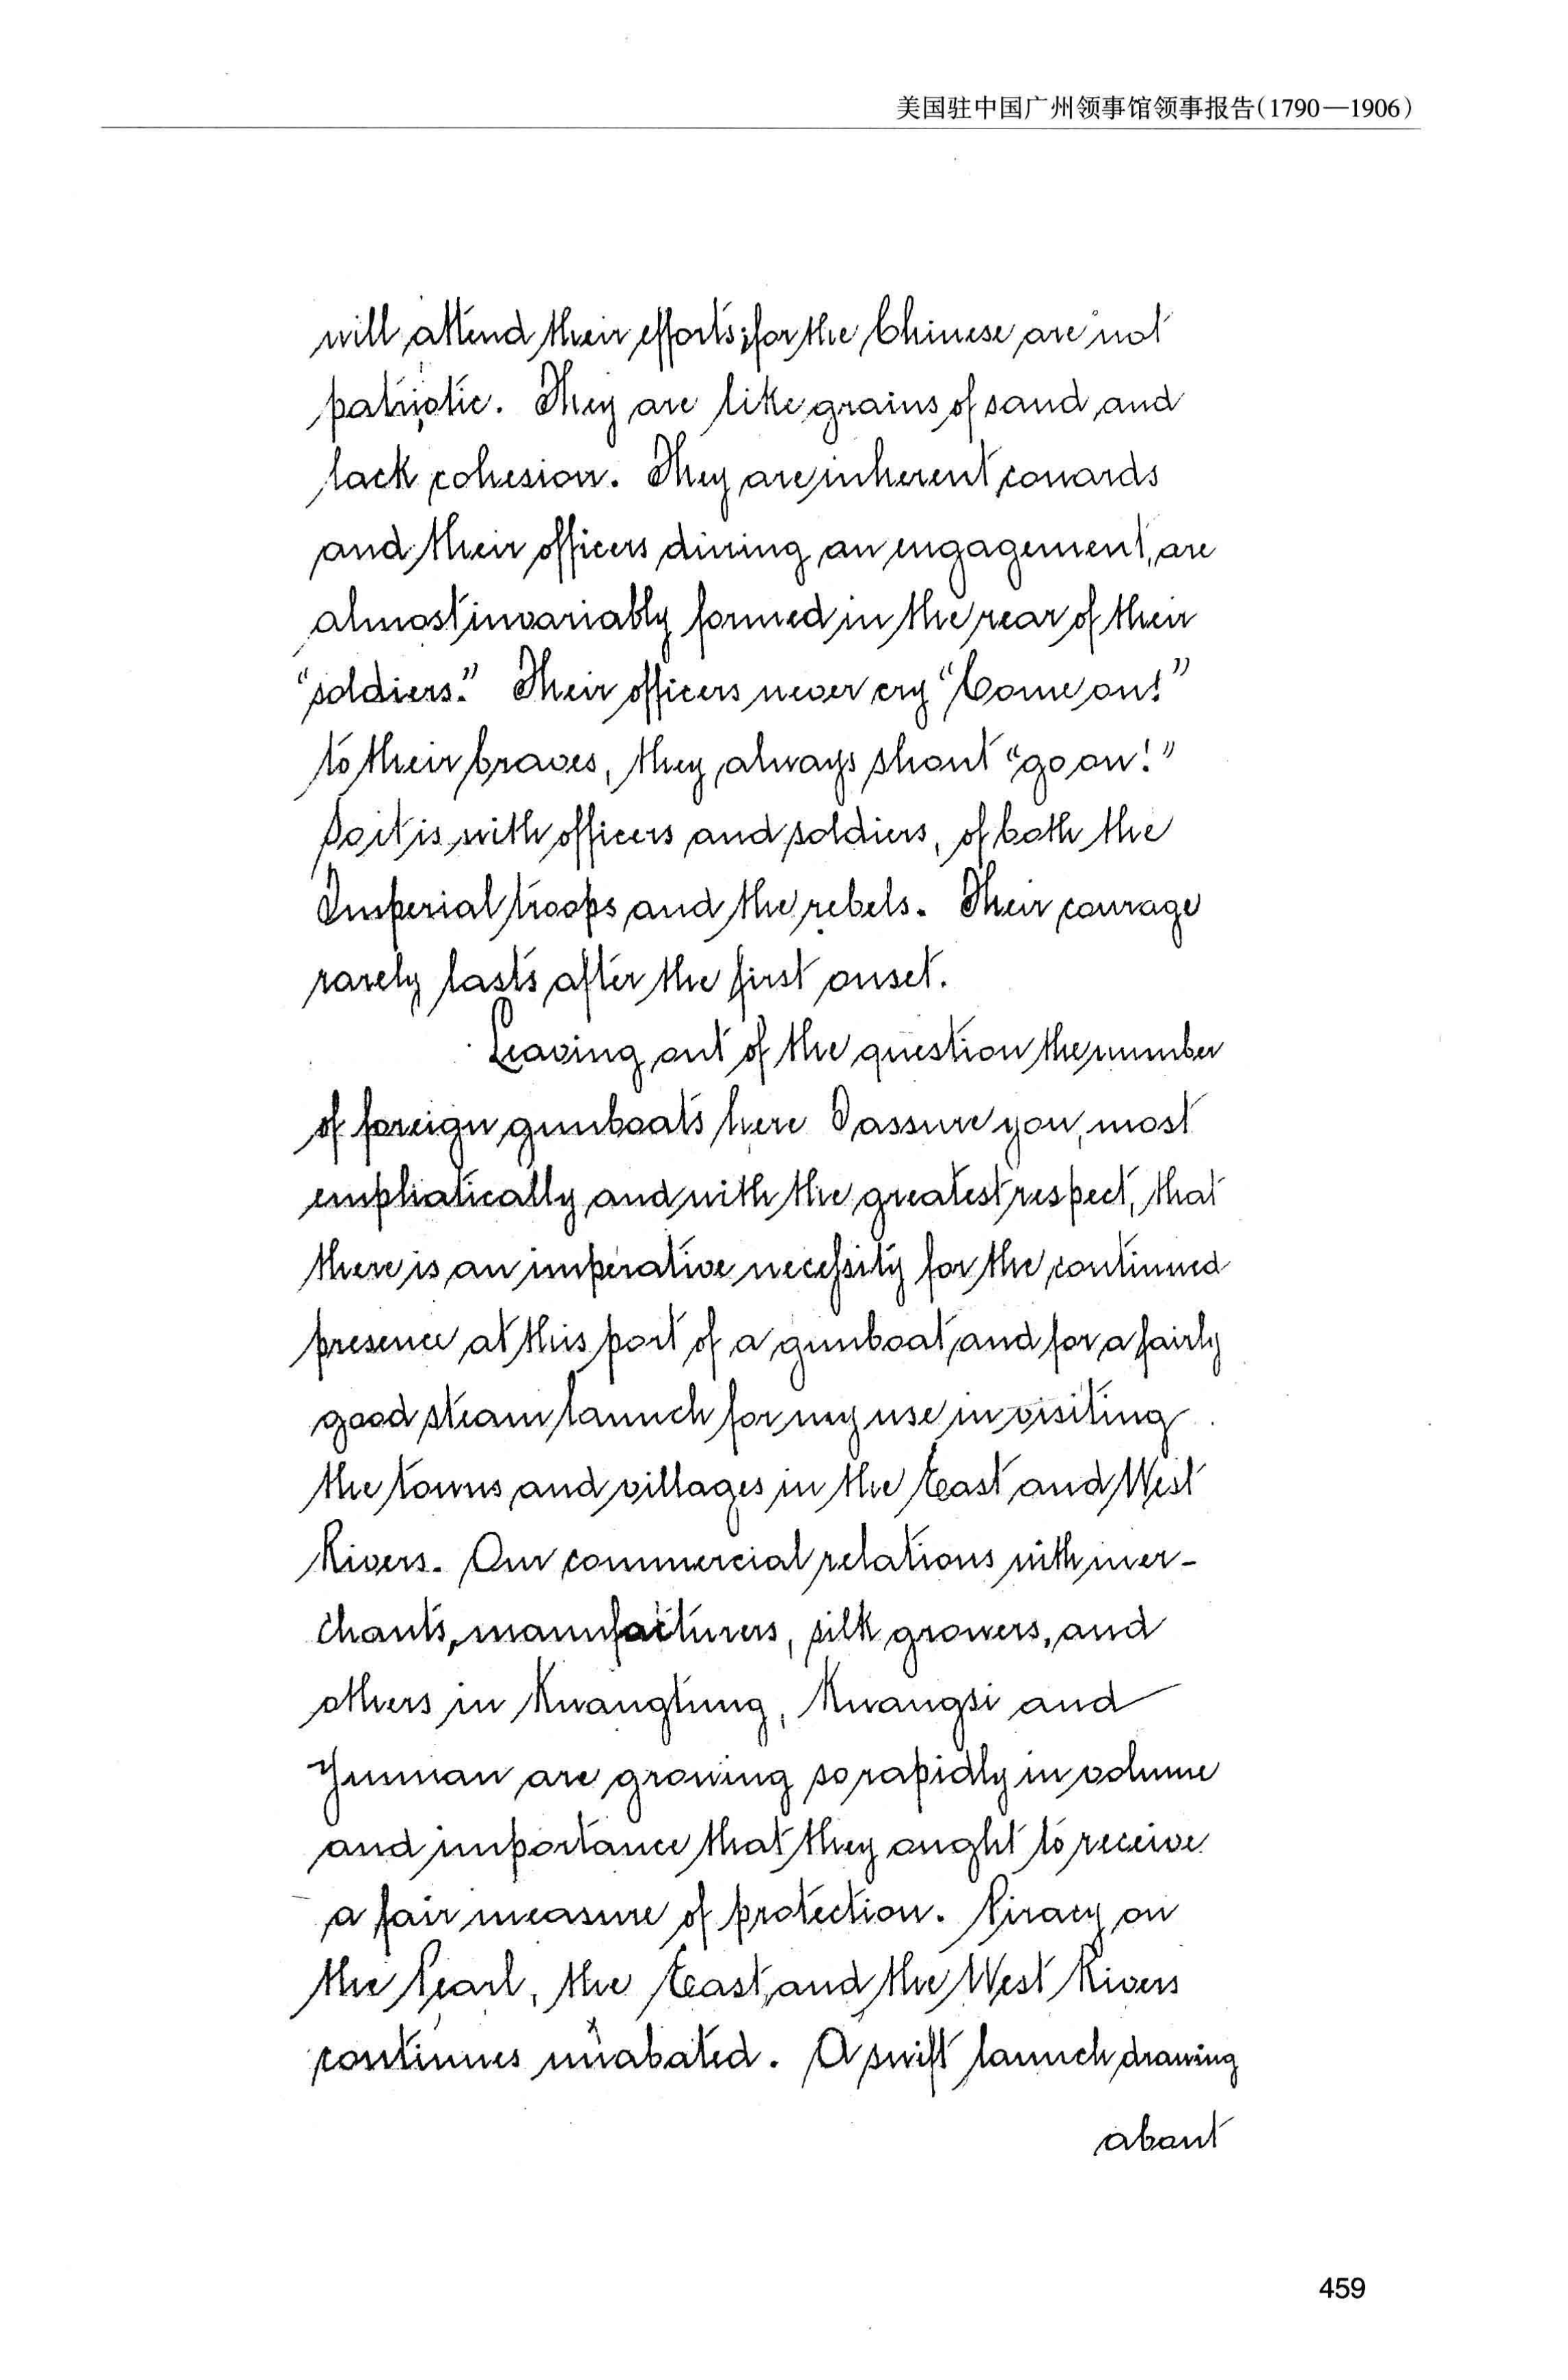 美国驻中国广州领事馆领事报告(1790—1906)
will attend their efforts; for the Chinese are not
patriotic. They are like grains of sand and
lack cohesion. They are inherent cowards
and their officers during an engagement, are
almost invariably formed in the rear of their
"soldiers." Their officers never cry "Come on!"
to their braves, they always shout "go on!"
So it is with officers and soldiers, of both the
Imperial troops and the rebels. Their courage
rarely lasts after the first onset.
Leaving out of the question the number
of foreign gunboats here I assure you, most
emphatically and with the greatest respect, that
there is an imperative necessity for the continued
presence at this port of a gunboat and for a fairly
good steam launch for my use in visiting
the towns and villages in the East and West
Rivers. Our commercial relations with mer-
chants, manufacturers, silk growers, and
others in Kwangtung, Kwangsi and
Yunnan are growing so rapidly in volume
and importance that they ought to receive
a fair measure of protection. Piracy on
the Pearl, the East, and the West Rivers
continues unabated. A swift launch drawing
about
459